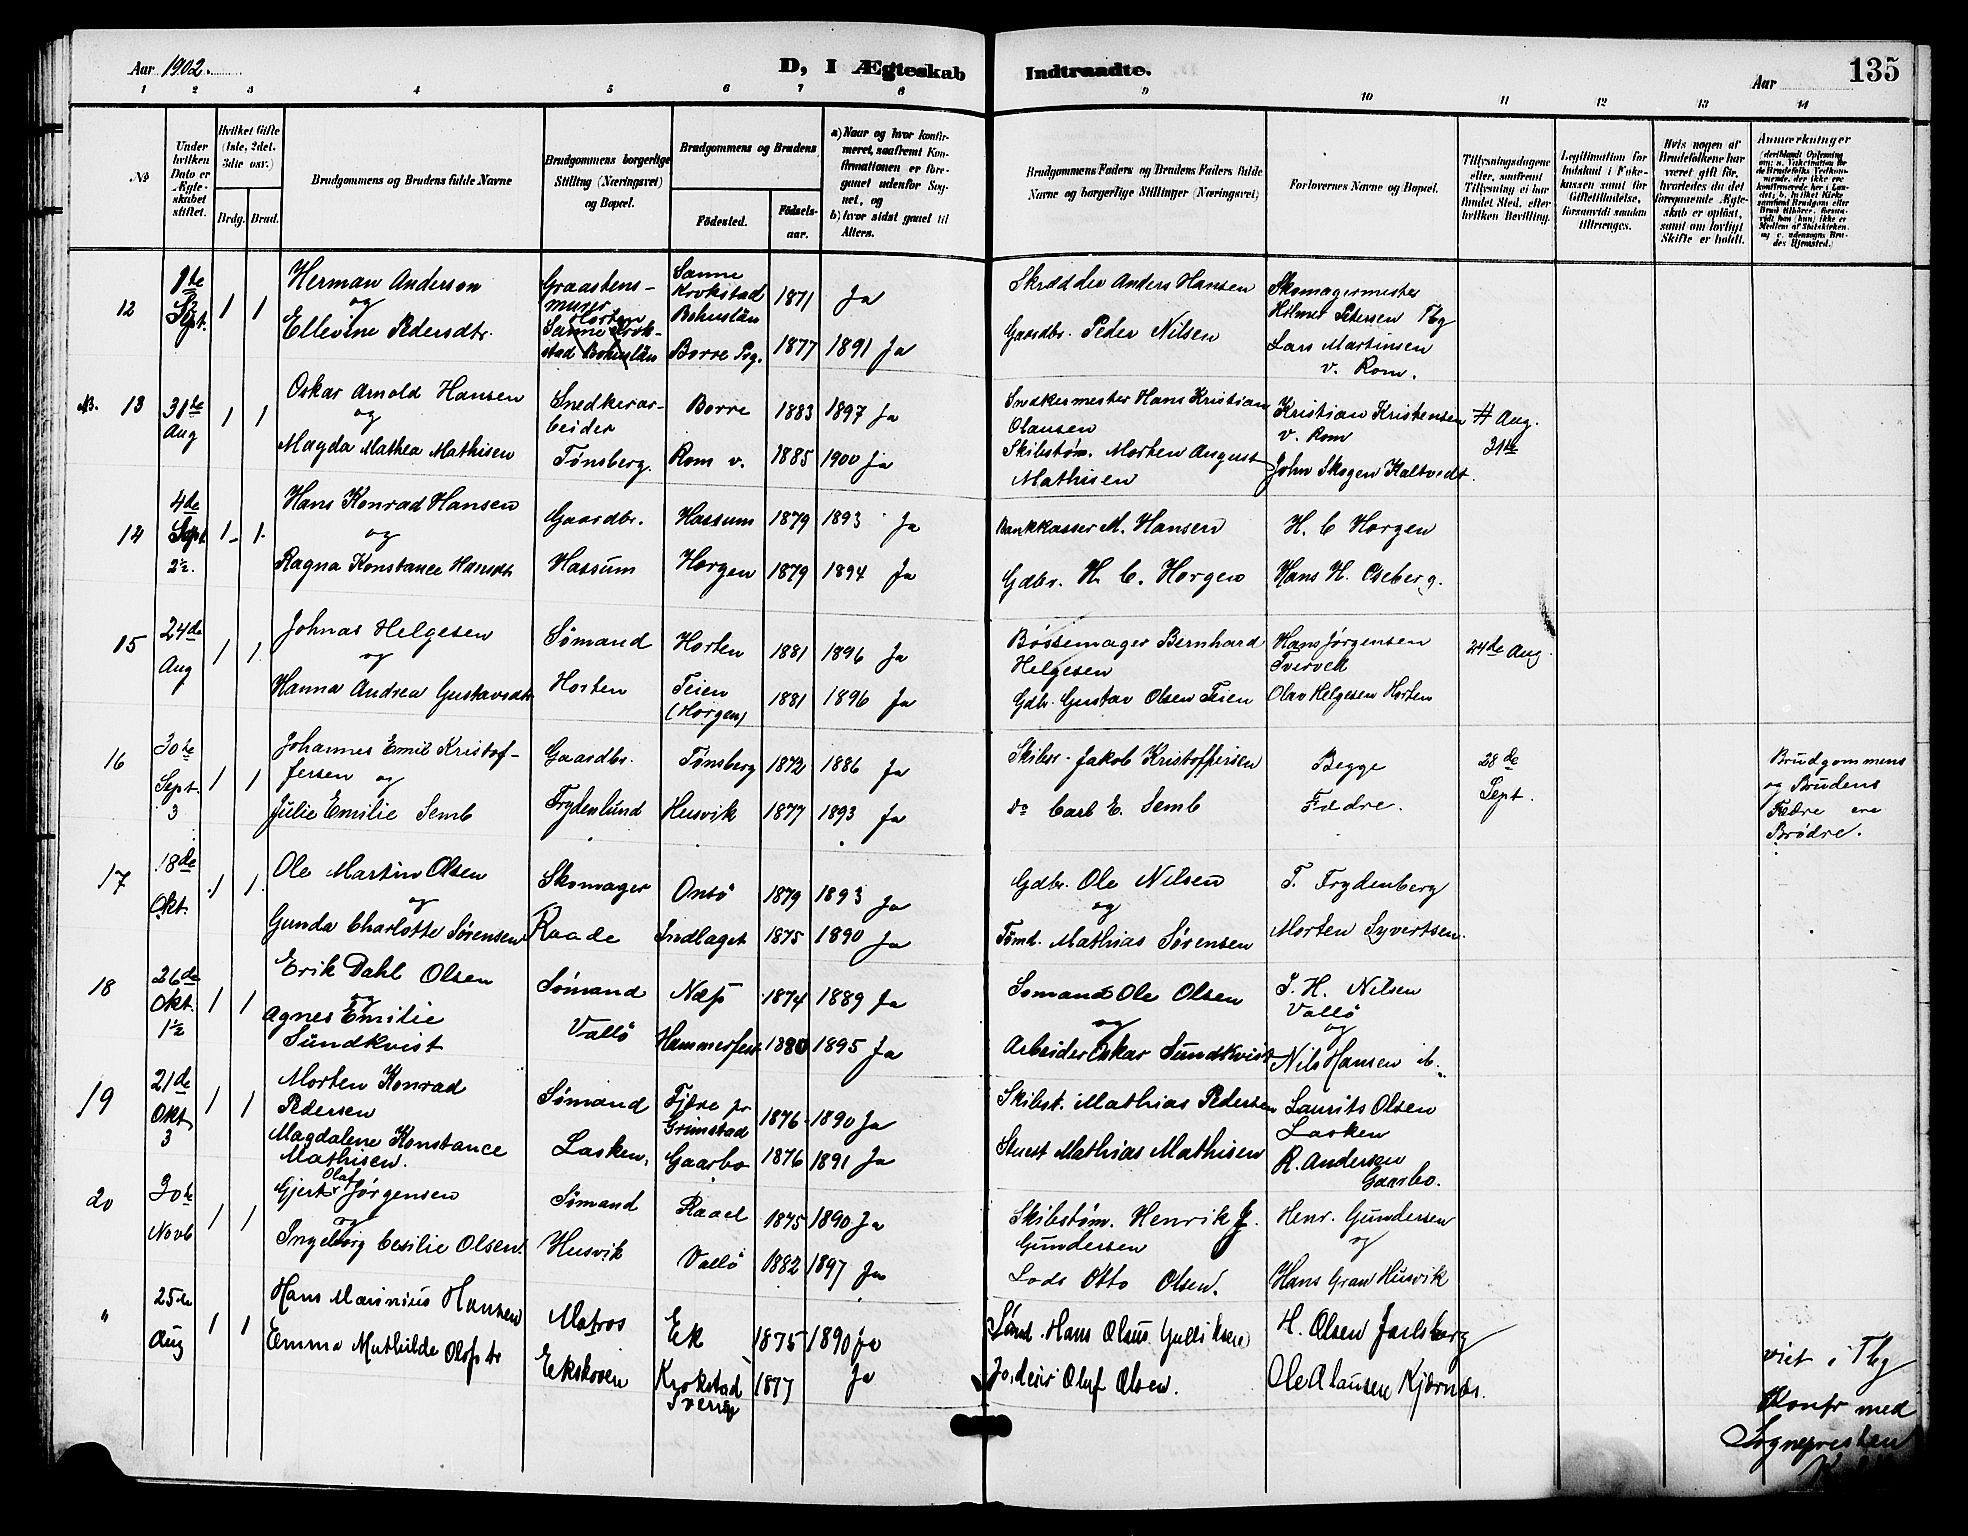 Aar 1902.
D, I Ægteskab Indtraadte.
Aar
135
1 2 3 4 5 6 7 8 9 10 11 12 13 14
No
Under hvilken Dato er Ægteskabet stiftet.
Hvilket Gifte (1ste, 2det, 3die osv.)
Brdg. Brud.
Brudgommens og Brudens fulde Navne
Brudgommens borgerlige Stilling (Næringsvei) og Bopæl.
Brudgommens og Brudens
Fødested.
Fødselsaar.
a) Naar og hvor konfirmeret, saafremt Konfirmationen er foregaaet udenfor Sognet, og
b) hvor sidst gaaet til Alters.
Brudgommens Faders og Brudens Faders fulde Navne og borgerlige Stillinger (Næringsvei)
Forlovernes Navne og Bopæl.
Tillysningsdagene eller, saafremt Tillysning ei har fundet Sted, efter hvilken Bevilling.
Legitimation for Indskud i Enkekassen samt for Giftetilladelse, forsaavidt saadan tiltrænges.
Hvis nogen af Brudefolkene har været gift før, hvorledes da det foregaaende Ægteskab er opløst, samt om lovligt Skifte er holdt.
Anmærkninger
12 1ste Sept. 1 1 Herman Anderson Graastens- Sanne 1871 Ja Skrædder Anders Hansen Skomagermester
og muger Krokstad Hilmer Petersen Tbg
Ellevine Pedersdtr. Horten Bohuslän Gaardbr. Peder Nilsen Lars Martinsen
Sanne Krok-
stad Bohuslän Borre Prg. 1877 1891 Ja v. Rom.
NB. 13 31te Aug 1 1 Oskar Arnold Hansen Snedkerar- Borre 1883 1897 Ja Snedkermester Hans Kristian Kristian Kristensen Aug.
og beider Olausen v. Rom 31te
Magda Mathea Mathisen Tønsberg. Rom v. 1885 1900 Ja Skibstøm. Morten August John Skogen Kaltvedt.
Mathisen
14 4de Sept 2½. 1 1 Hans Konrad Hansen Gaardbr. Hassum 1879 1893 Ja Bankkasser M. Hansen H. C Horgen
og
Ragna Konstance Hansdt. Hassum Horgen 1879 1894 Ja Gdbr. H. C. Horgen Hans H. Oseberg.
15 24de Aug 1 1 Johnas Helgesen Sømand Horten 1881 1896 Ja Bøssemager Bernhard Hans Jørgensen 24de Aug
og Helgesen Tverved
Hanna Andrea Gustavsdtr Horten Teien (Horgen) 1881 1896 Ja Gdbr. Gustav Olsen Teien Olav Helgesen Horten
16 30te Sept. 3 1 1 Johannes Emil Kristof- Gaardbr. Tønsberg 1872 1886 Ja Skibsr. Jakob Kristoffersen Begge 28de Brudgommens
fersen og Sept. og Brudens
Julie Emilie Semb Frydenlund Husvik 1877 1893 Ja do Carl E. Semb Fædre. Fædre ere
Brødre.
17 18de Okt. 1 1 Ole Martin Olsen Skomager Onsö 1879 1893 Ja Gdbr. Ole Nilsen T. Frydenberg
og og
Gunda Charlotte Sørensen Raade Indlaget 1875 1890 Ja Tømd. Mathias Sørensen Morten Syvertsen.
18 26de Okt. 1½ 1 1 Erik Dahl Olsen Sømand Næs 1874 1889 Ja Sømand Ole Olsen J. H. Nilsen
og og Vallö
Agnes Emilie og
Sundkvist Vallö Hammerfest 1880 1895 Ja Arbeider Oskar Sundkvist Nils Hansen
19 21de Okt 3 1 1 Morten Konrad Sømand Fjære pr 1876 1890 Ja Skibsk. Mathias Pedersen Laurits Olsen
Pedersen Grimstad Lasken
Magdalene Konstance Lasken. Gaarbo 1876 1891 Ja Stuert Mathias Mathisen R. Andersen
Mathisen. Gaarbo.
20 30te Novb 1 1 Gjert Olaf Jørgensen Sømand Raael 1875 1890 Ja Skibstøm. Henrik J. Henr. Gundersen
og Gundersen og
Ingeborg Cesilie Olsen Husvik Vallö 1882 1897 Ja Lods Otto Olsen. Hans Gran Husvik
" 25de Aug 1 1 Hans Marinius Hansen Matros Ek 1875 1890 Ja Sømd. Hans Olsen Gulliksen H. Olsen Jarlsberg
Emma Mathilde Olafsdtr Ekskoven Krokstad Sverrig 1877 Ja Olaf Olsen. Ole A
viet i Tbg
Konfr med
Sognepresten